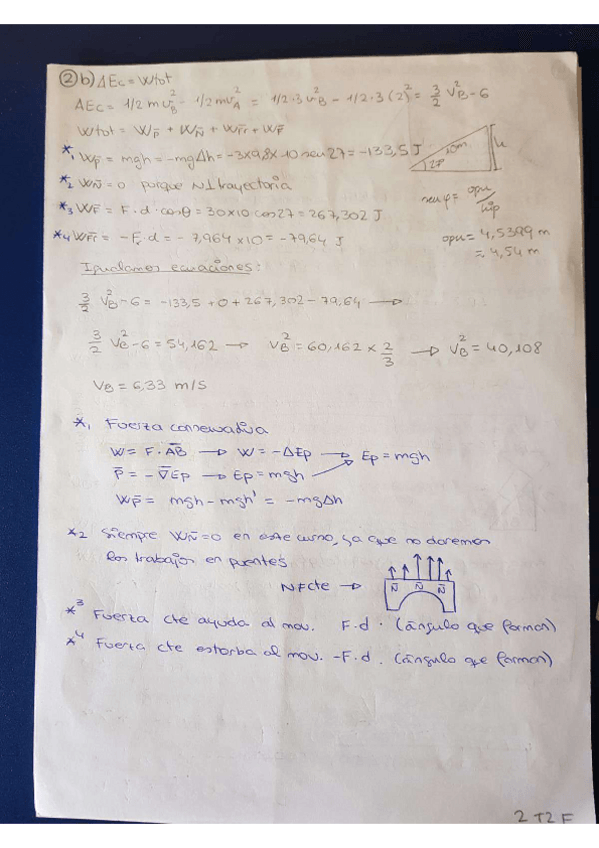 2 b) ΔEc = Wtot
ΔEc = 1/2 m v²B - 1/2 m v²A = 1/2·3 v²B - 1/2·3 (2)² = 3/2 V²B - 6
Wtot = Wp̄ + WN̄ + WF̄r + WF̄
*1 Wp̄ = mgh = -mgΔh = -3x9,8x10 sen 27 = -133,5 J
10m h 27º
*2 WN̄ = 0 porque N⊥ trayectoria
sen φ = opu/hip
*3 WF̄ = F·d·cosθ = 30x10 cos27 = 267,302 J
opu = 4,5399 m
≈ 4,54 m
*4 WF̄r = -Fr·d = -7,964 x10 = -79,64 J
Igualamos ecuaciones:
3/2 V²B - 6 = -133,5 + 0 + 267,302 - 79,64 →
3/2 V²B - 6 = 54,162 → V²B = 60,162 x 2/3 → V²B = 40,108
VB = 6,33 m/s
*1 Fuerza conservadiva
W = F·AB → W = -ΔEp → Ep = mgh
p̄ = -∇Ep → Ep = mgh
Wp̄ = mgh - mgh' = -mgΔh
*2 Siempre WN̄ = 0 en este curso, ya que no daremos
los trabajos en puentes.
N≠cte → N̄ N̄ N̄
*3 Fuerza cte ayuda al mov. F·d · (ángulo que forman)
*4 Fuerza cte estorba al mov. -F·d. (ángulo que forman)
2 T2 F